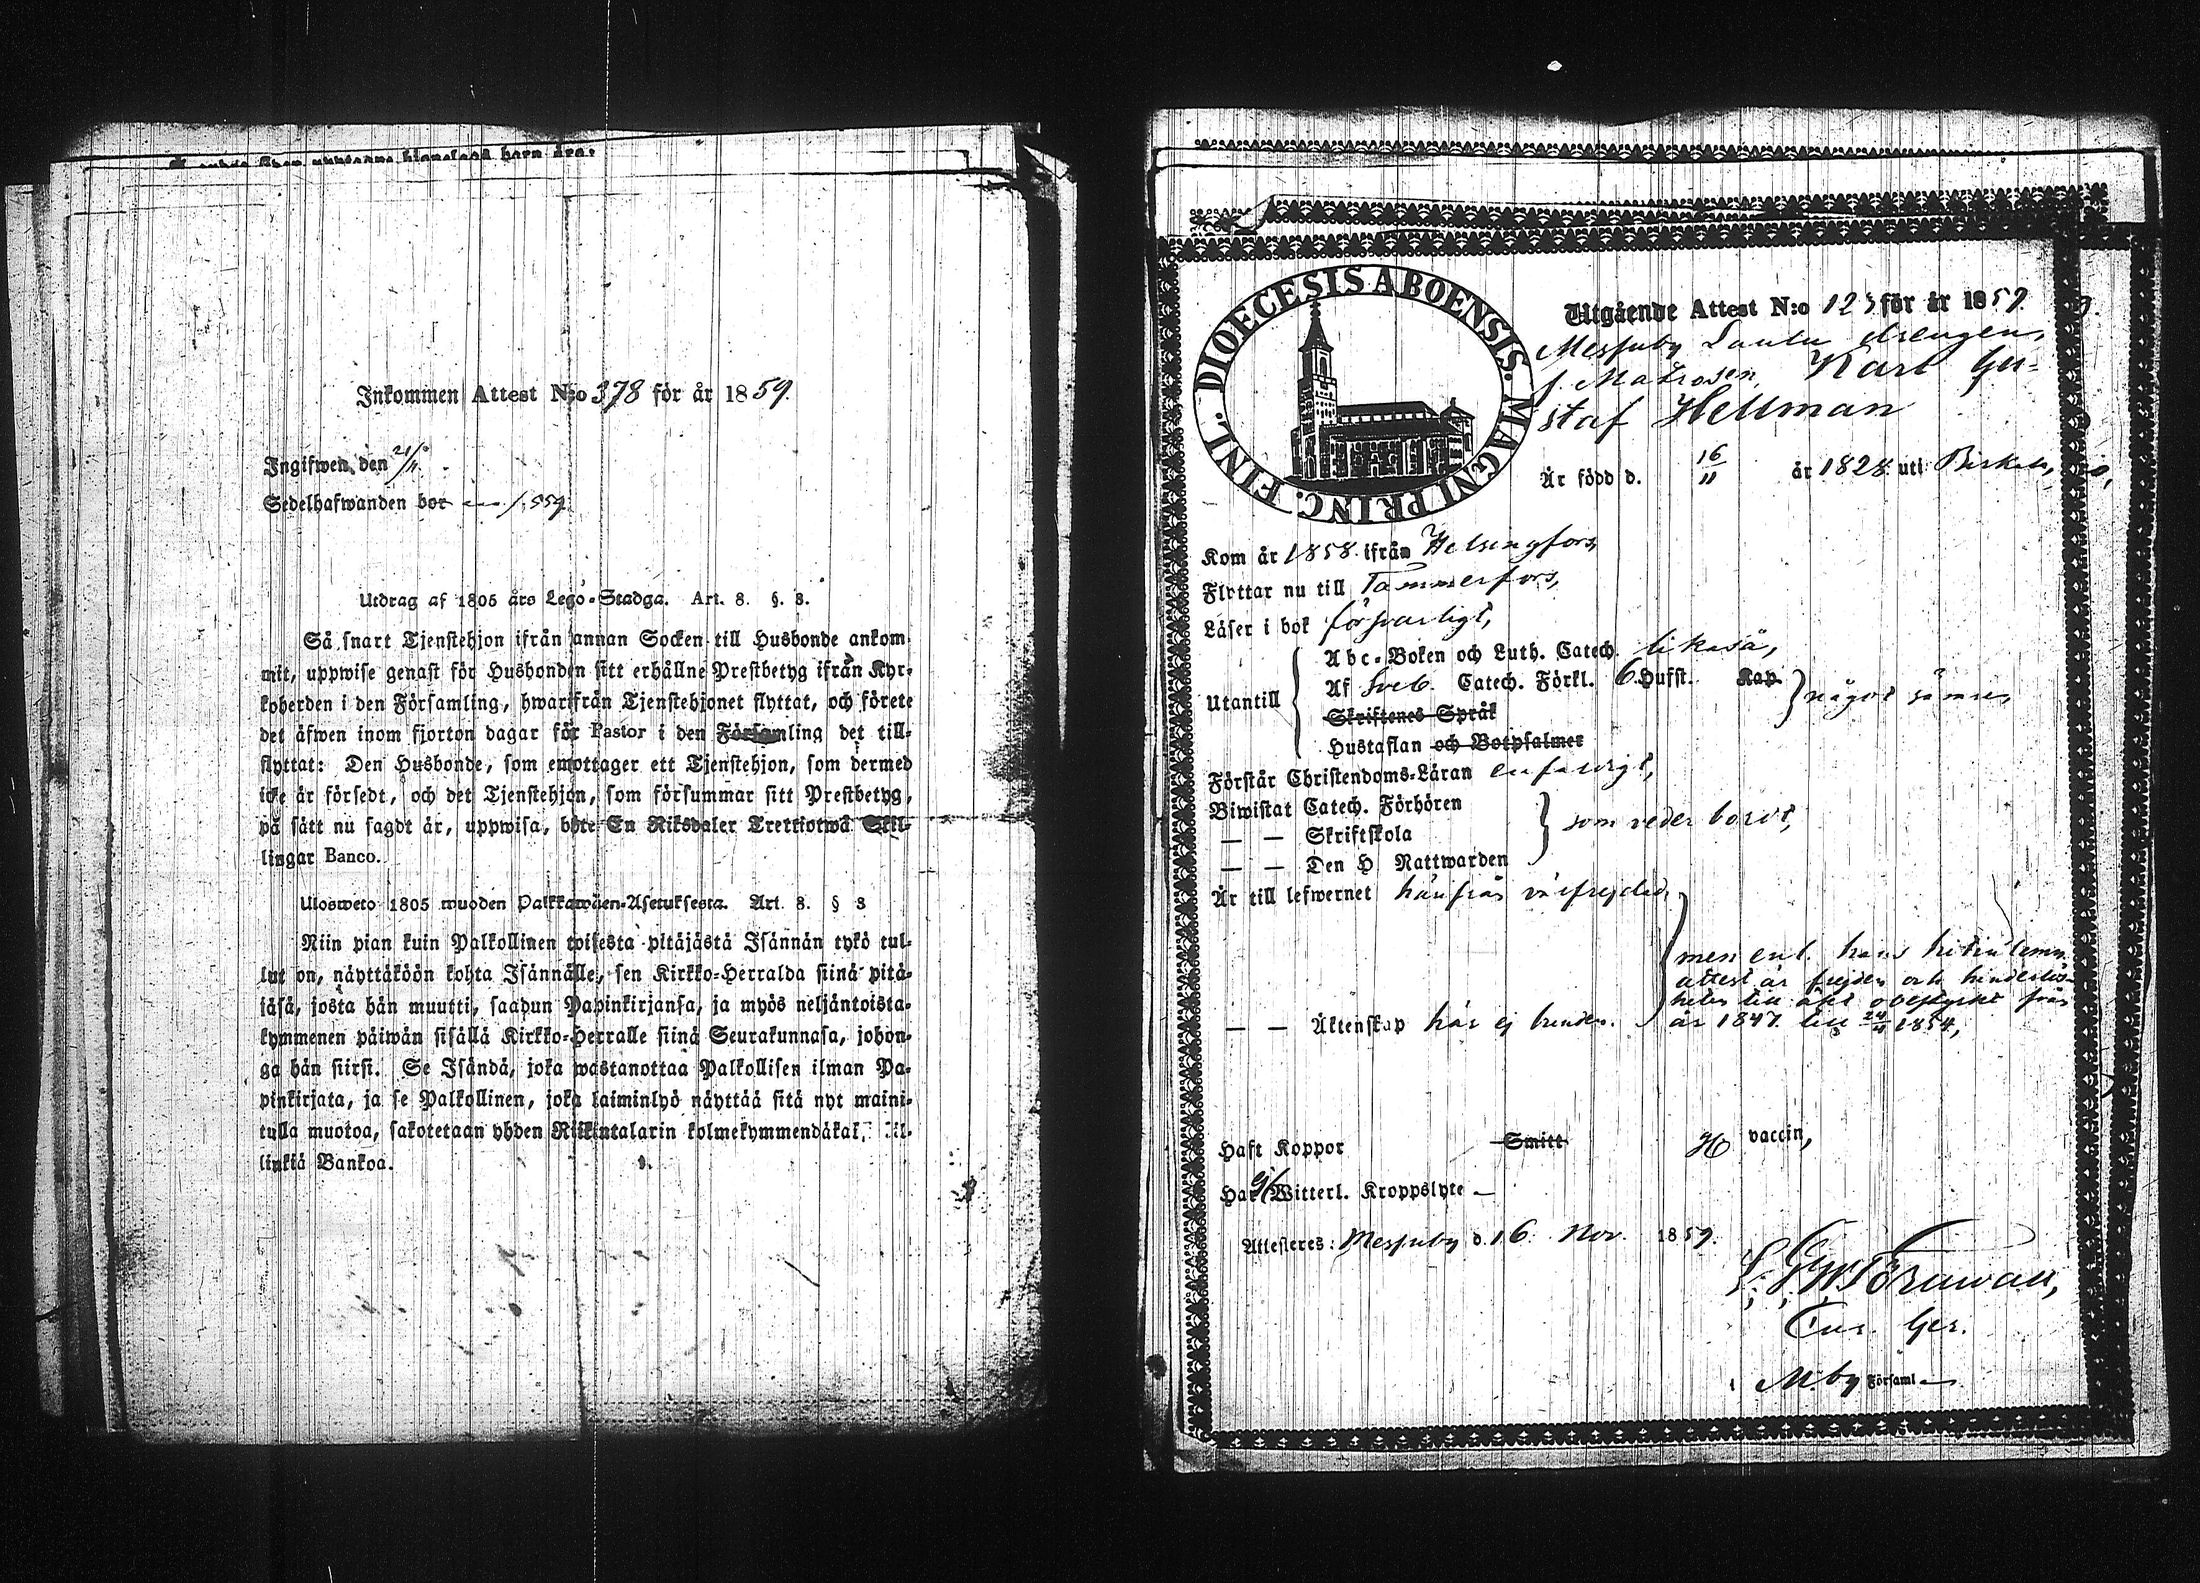 Inkommen Attest N:o 378 för år 1859.
Ingifwen den 21/11.
Sedelhafwanden bor p. 559.
Utdrag af 1805 års Lego-Stadga. Art. 8. §. 8.
Så snart Tjenstehjon ifrån annan Socken till Husbonde ankom-
mit, uppwise genast för Husbonden sitt erhållne Prestbetyg ifrån Kyr-
koherden i den Församling, hwarifrån Tjenstehjonet flyttat, och förete
det äfwen inom fjorton dagar för Pastor i den Församling det till-
flyttat: Den Husbonde, som emottager ett Tjenstehjon, som dermed
icke är försedt, och det Tjenstehjon, som försummar sitt Prestbetyg,
på sätt nu sagdt är, uppwisa, böte En Riksdaler Trettiotwå Skil-
lingar Banco.
Ulosweto 1805 wuoden Palkkawäen-Asetuksesta. Art. 8. § 8
Niin pian kuin Palkollinen toisesta pitäjästä Isännän tykö tul-
lut on, näyttäköön kohta Isännälle, sen Kirkko-Herralda siinä pitä-
jäsä, josta hän muutti, saadun Papinkirjansa, ja myös neljäntoista-
kymmenen päiwän sisällä Kirkko-Herralle siinä Seurakunnasa, johon-
ga hän siirsi. Se Isändä, joka wastanottaa Palkollisen ilman Pa-
pinkirjata, ja se Palkollinen, joka laiminlyö näyttää sitä nyt maini-
tulla muotoa, sakotetaan yhden Riikintalarin kolmekymmendäkaksi kil-
linkiä Bankoa.
DIOECESIS ABOENSIS. MAGNI PRINC. FINL.
Utgående Attest N:o 123 för år 1859.
Messuby drengen,
f. Matrosen, Karl Gu-
staf Hellman
Är född d. 16/11 år 1828 uti Birkala,
Kom år 1858 ifrån Helsingfors,
Flyttar nu till Tammerfors,
Läser i bok försvarligt,
Abc-Boken och Luth. Catech. likaså,
Utantill Af Sveb. Catech. Förkl. 6 Hufst. Kap. något sämre,
Skriftenes Språk
Hustaflan och Botpsalmer
Förstår Christendoms-Läran enfaldigt,
Biwistat Catech. Förhören
— — Skriftskola som vederbordt,
— — Den H. Nattwarden
Är till lefwernet härifrån välfrejdad,
men enl. hans hitkomne
attest är frejden och hinderlös-
heten till äkt. obestyrkt från
— — Äktenskap här ej bunden. år 1847 till 24/4 1854,
Haft Koppor Smitt H vaccin,
Har ej Witterl. Kroppslyte —
Attesteres: Messuby d. 16 Nov. 1859.
M.by Församl —